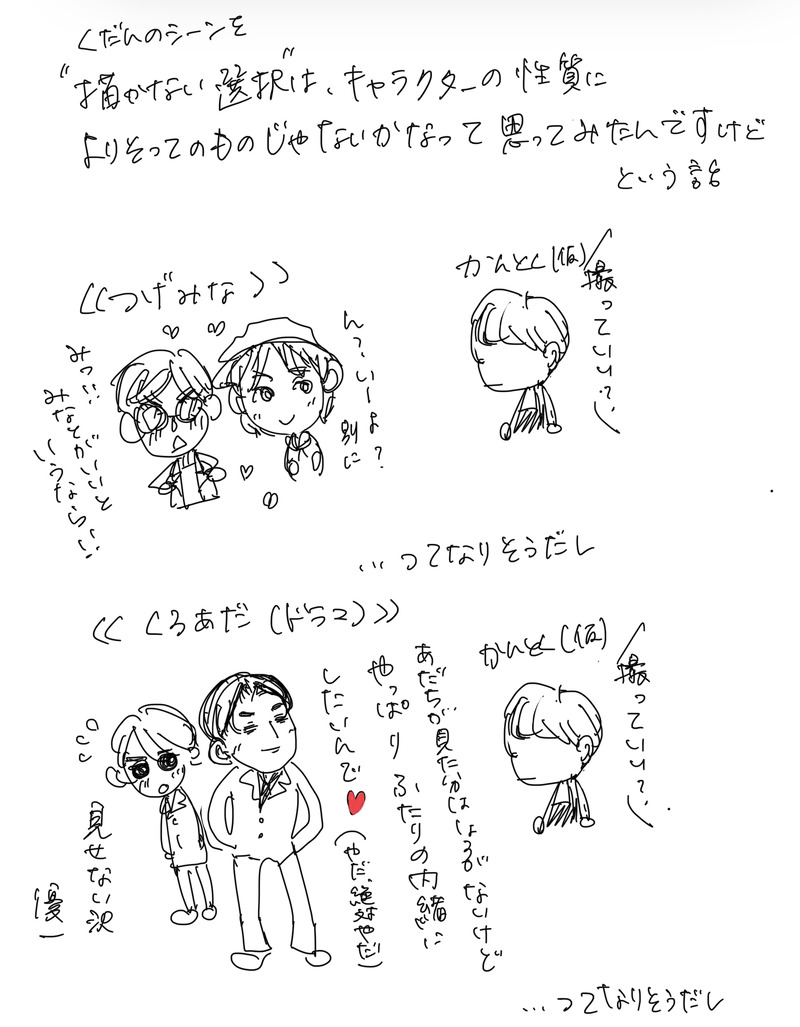 くだんのシーンを
"描かない選択"は、キャラクターの性質に
よりそってのものじゃないかなって思ってみたんですけど
という話
《つげみな》
かんとく(仮)
撮っていい?
んっ、いーよ?
別に
みっ…
みなとがいいと
いうなら…
…ってなりそうだし
《くろあだ(ドラマ)》
かんとく(仮)
撮っていい?
あだちが見たかはしょうがないけど
やっぱりふたりの内緒に
したいんで♥(やだ、絶対やだ)
見せない沢
優一
…ってなりそうだし